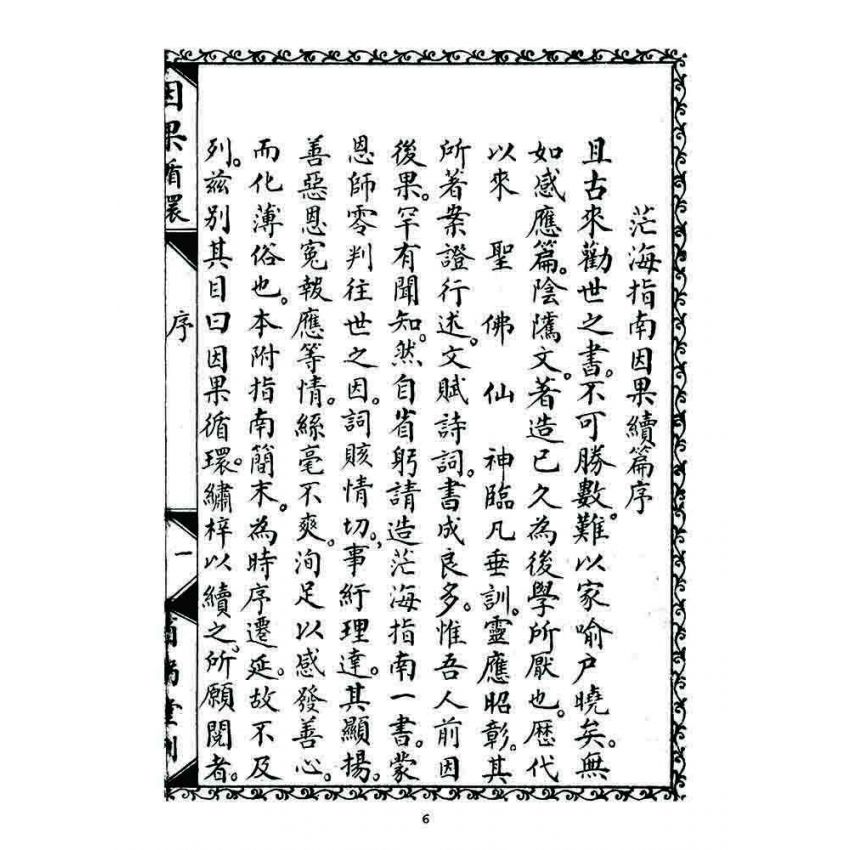 茫海指南因果續篇序
且古來勸世之書。不可勝數。難以家喻戶曉矣。無
如感應篇。陰隲文。著造已久為後學所厭也。歷代
以來聖佛仙神臨凡垂訓。靈應昭彰。其
所著案證行述。文賦詩詞。書成良多。惟吾人前因
後果。罕有聞知。然自省躬請造茫海指南一書。蒙
恩師零判往世之因。詞賅情切。事綍理達。其顯揚。
善惡恩冤報應等情。絲毫不爽。洵足以感發善心。
而化薄俗也。本附指南簡末。為時序遷延。故不及
列。茲別其目曰因果循環。繡梓以續之。所願閱者。
因果循環
序
一
堂刊
6